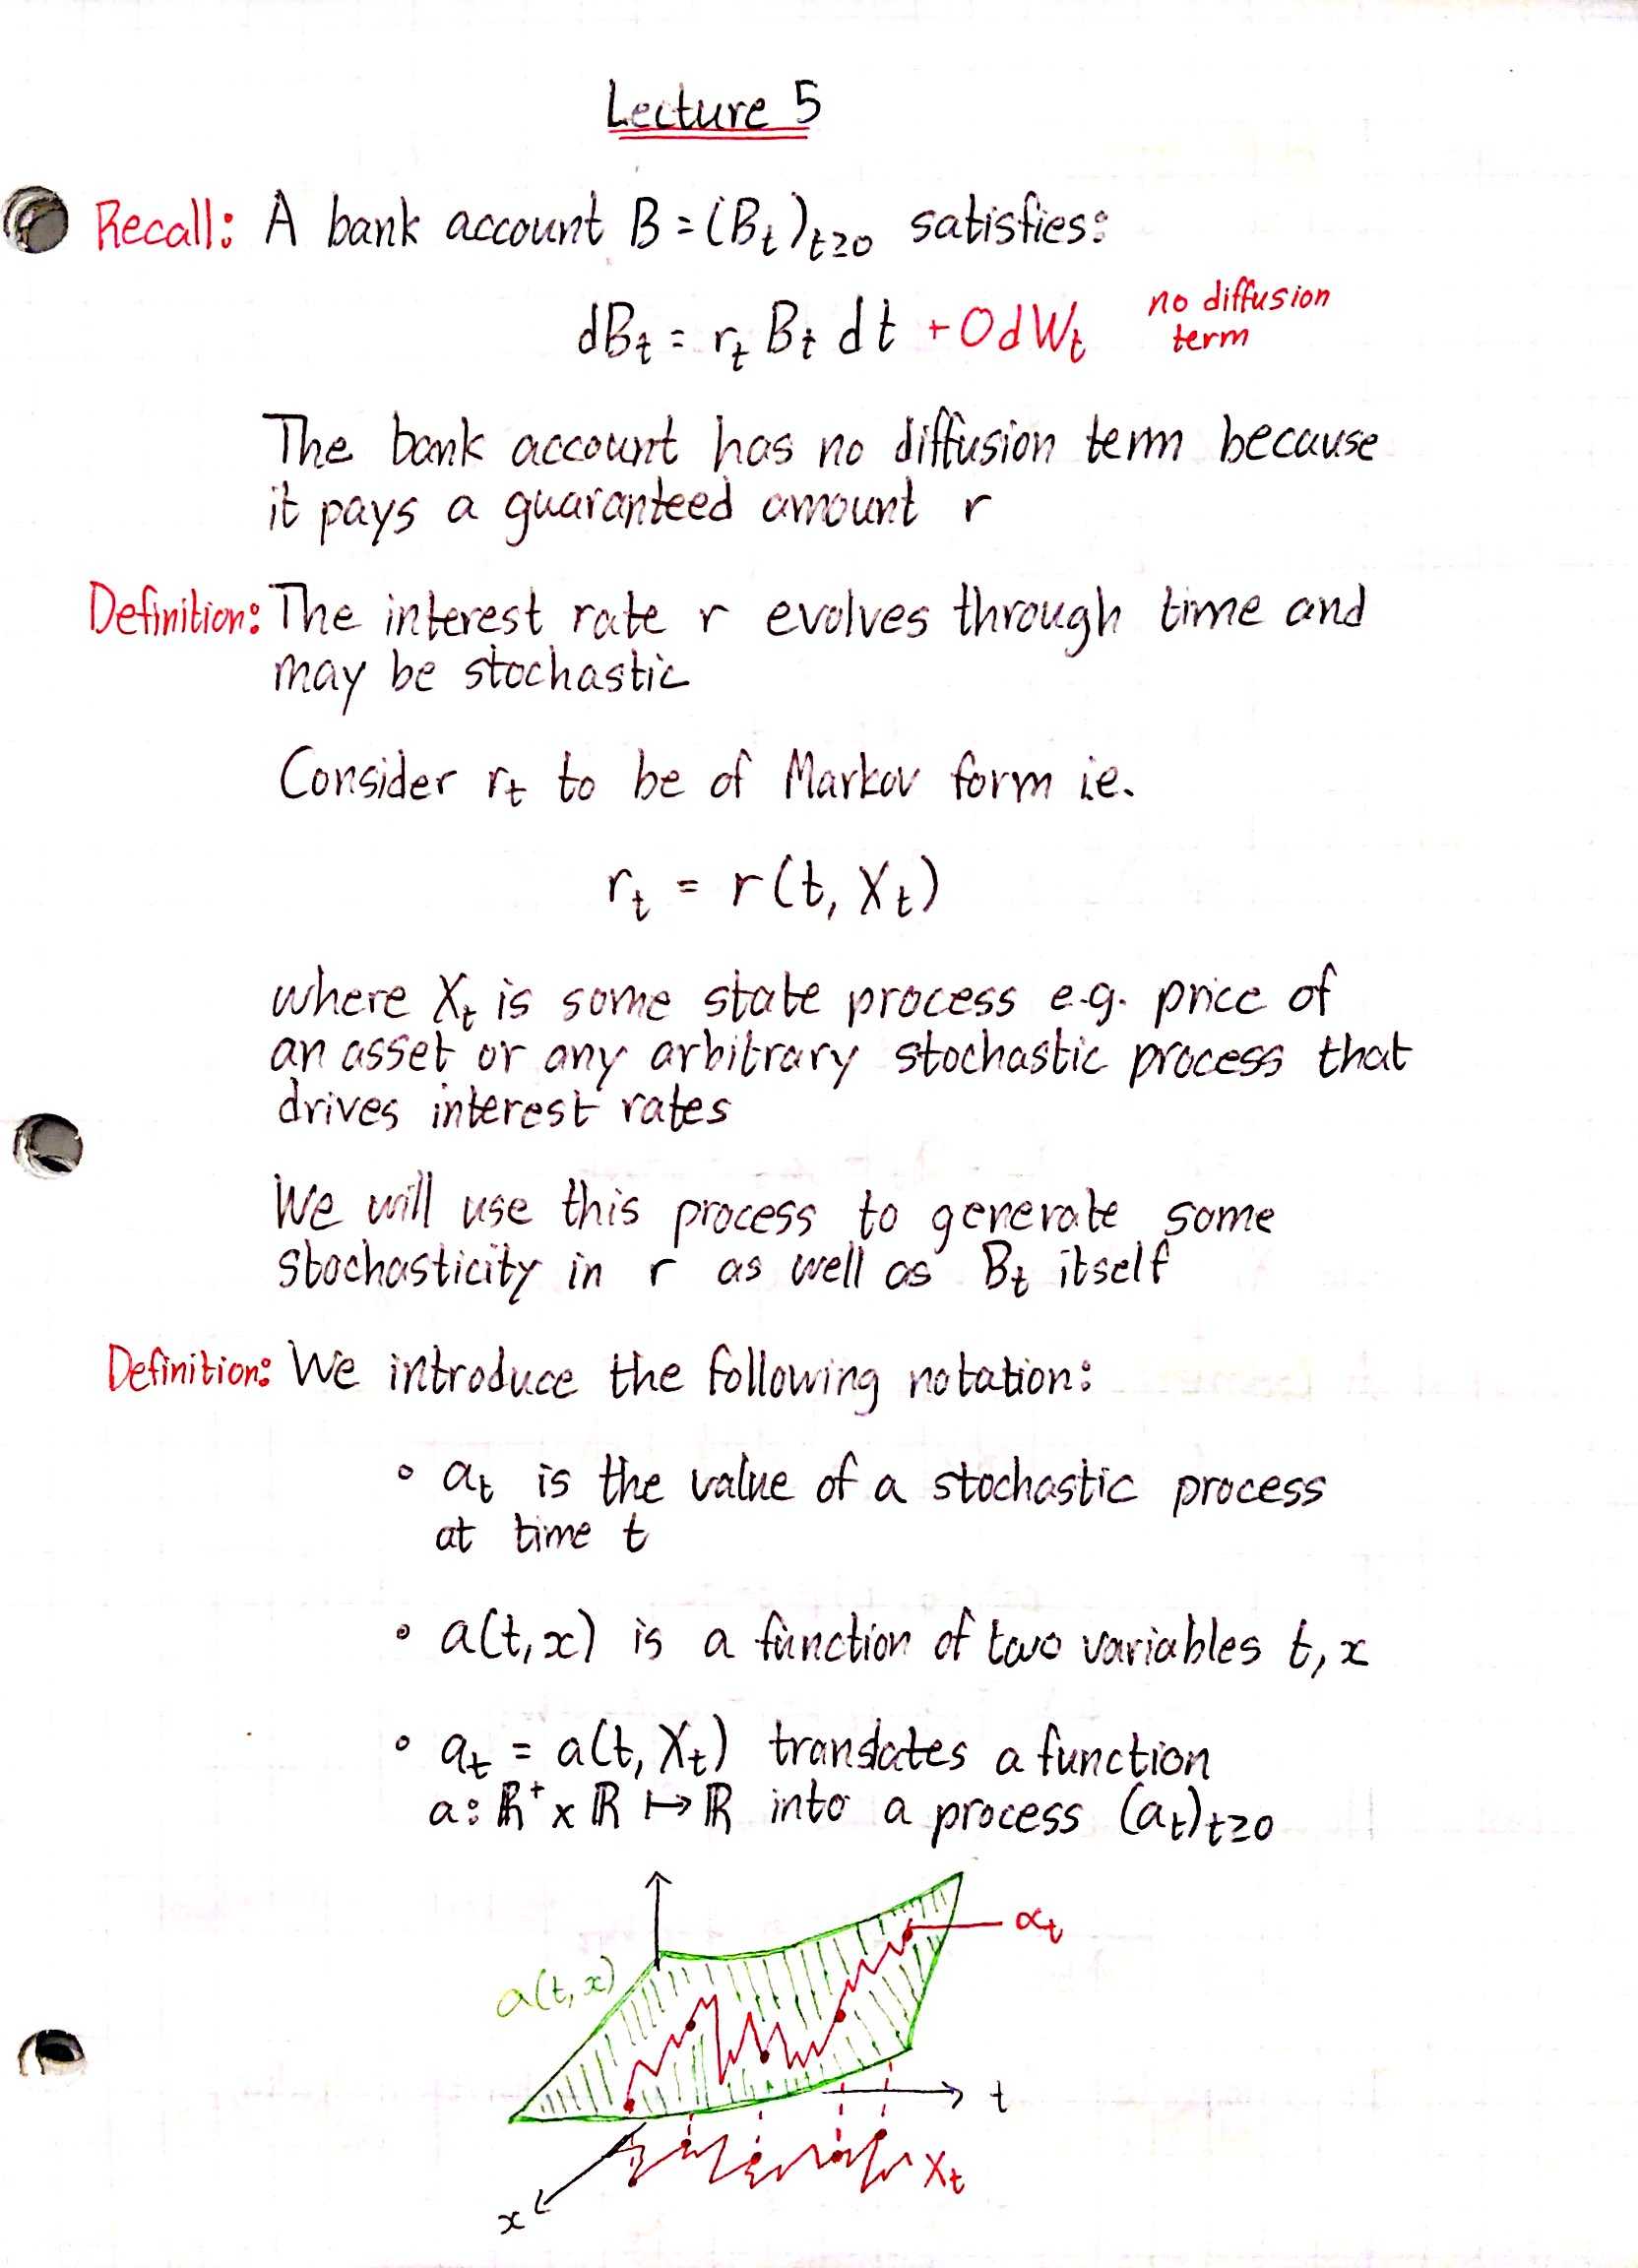 Lecture 5
Recall: A bank account B = (Bₜ)ₜ≥₀ satisfies:
dBₜ = rₜ Bₜ dt + 0dWₜ no diffusion
term
The bank account has no diffusion term because
it pays a guaranteed amount r
Definition: The interest rate r evolves through time and
may be stochastic
Consider rₜ to be of Markov form ie.
rₜ = r(t, Xₜ)
where Xₜ is some state process e.g. price of
an asset or any arbitrary stochastic process that
drives interest rates
We will use this process to generate some
stochasticity in r as well as Bₜ itself
Definition: We introduce the following notation:
∘ aₜ is the value of a stochastic process
at time t
∘ a(t,x) is a function of two variables t, x
∘ aₜ = a(t, Xₜ) translates a function
a: ℝ⁺ x ℝ ↦ ℝ into a process (aₜ)ₜ≥₀
αₜ
a(t,x)
t
Xₜ
x